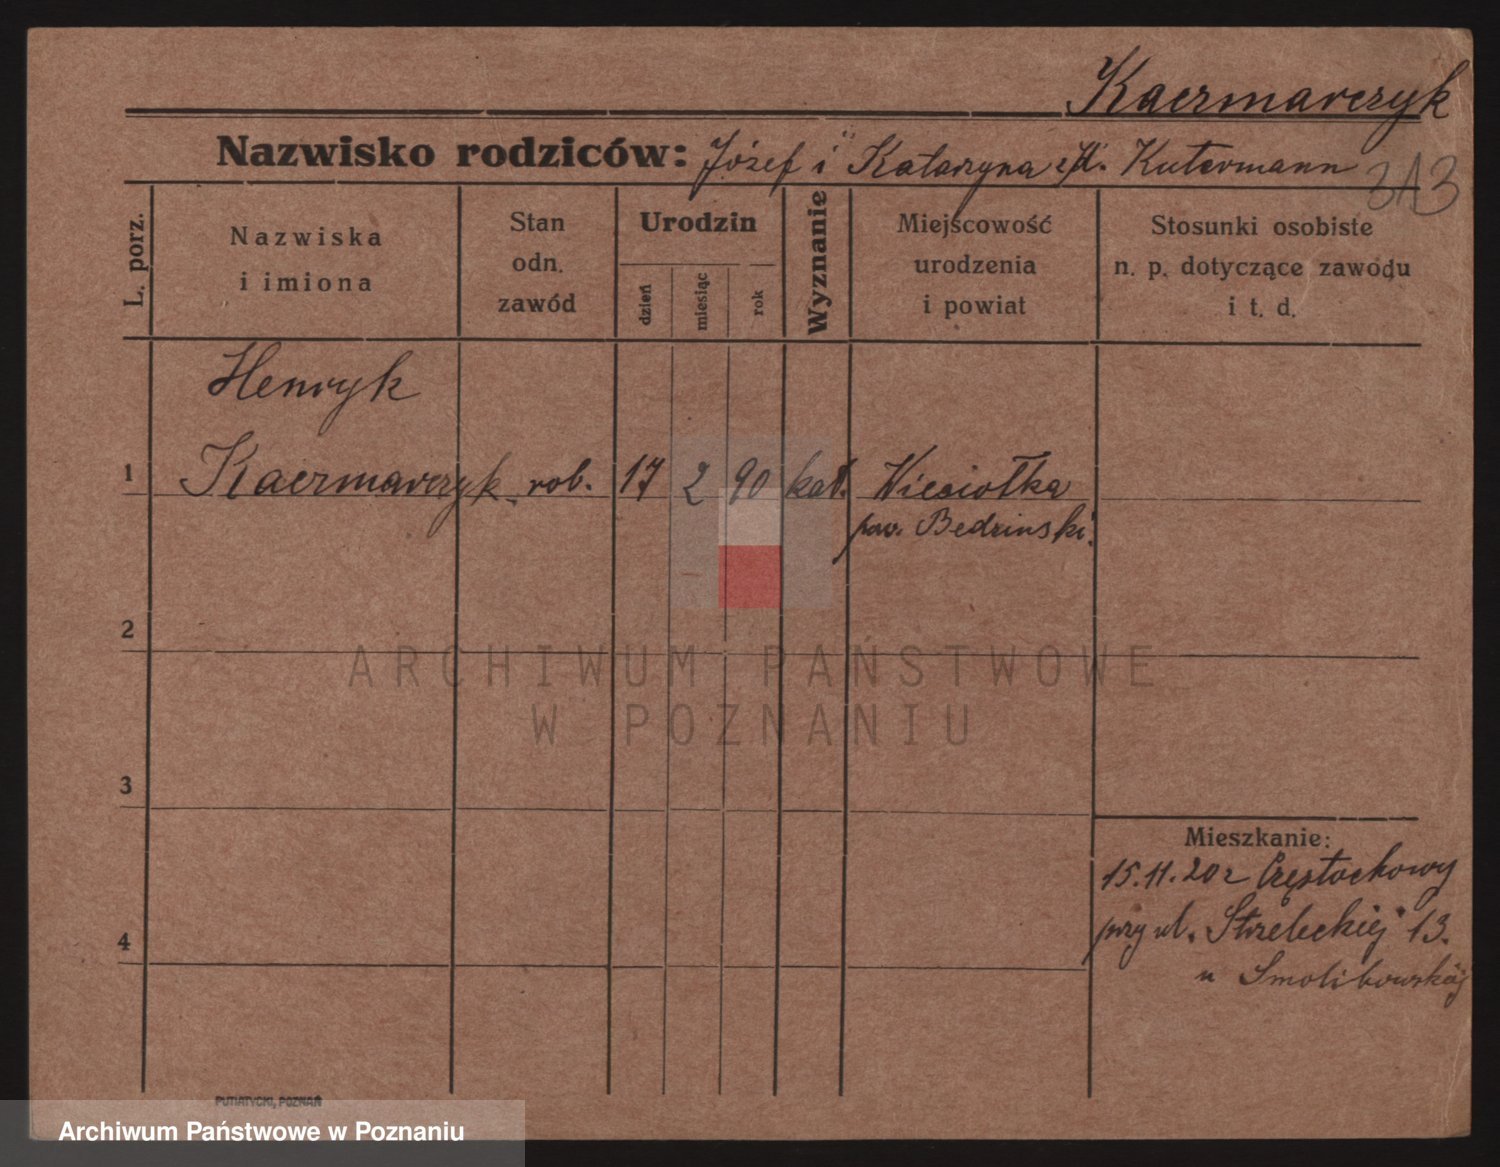 Kaczmarczyk
Nazwisko rodziców: Józef i Katarzyna Kutermann
3A3
L. porz.
Nazwiska
i imiona
Stan
odn.
zawód
Urodzin
dzień
miesiąc
rok
Wyznanie
Miejscowość
urodzenia
i powiat
Stosunki osobiste
n. p. dotyczące zawodu
i t. d.
Henryk
1 Kaczmarczyk rob. 17 2 90 kat. Wiesiołka
pow. Bedzinski.
2
ARCHIWUM PAŃSTWOWE
W POZNANIU
3
Mieszkanie:
15.11.20 z Częstochowy
przy ul. Strzeleckiej 13.
4
u Smolibowskiej
PUTIATYCKI, POZNAŃ
Archiwum Państwowe w Poznaniu